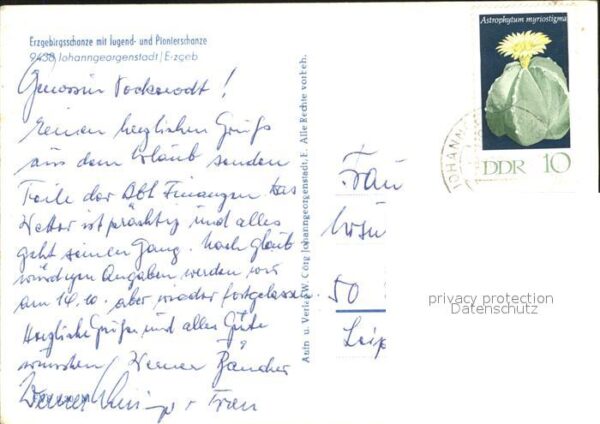 Erzgebirgsschanze mit Jugend- und Pionierschanze
9438 Johanngeorgenstadt/Erzgeb
Genossin !
Einen herzlichen Gruß
aus dem Urlaub senden
Teile der Abt Finanzen Das
Wetter ist prächtig und alles
geht seinen Gang. Nach glaub
würdigen Angaben werden wir
am 14.10. aber wieder fortgelassen.
Herzliche Grüße und alles Gute
wünschen Werner
Werner + Frau
Aufn u. Verlag W. Görg Johanngeorgenstadt, E. Alle Rechte vorbeh.
Astrophytum myriostigma
DDR 10
JOHANN
Frau
50
Leip
privacy protection
Datenschutz